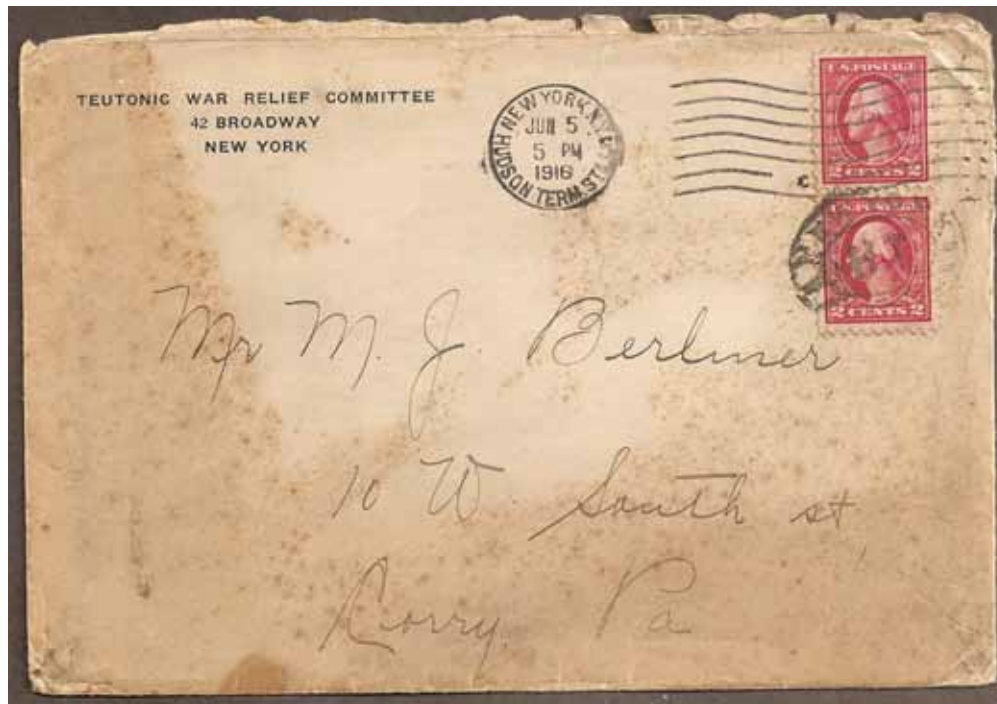 TEUTONIC WAR RELIEF COMMITTEE
42 BROADWAY
NEW YORK
NEW YORK, N.Y.
JUN 5
5 PM
1916
HUDSON TERM. STA.
C
U.S. POSTAGE
2 CENTS 2
U.S. POSTAGE
2 CENTS 2
Mr M. J. Berliner
10 W South st
Corry Pa